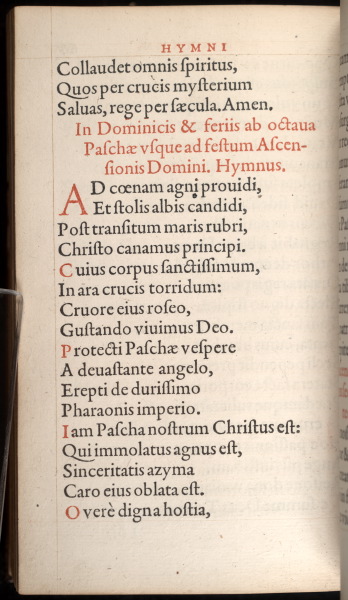 HYMNI
Collaudet omnis ſpiritus,
Quos per crucis myſterium
Saluas, rege per ſæcula. Amen.
In Dominicis & feriis ab octaua
Paſchæ vſque ad feſtum Aſcen-
ſionis Domini. Hymnus.
AD cœnam agni prouidi,
Et ſtolis albis candidi,
Poſt tranſitum maris rubri,
Chriſto canamus principi.
Cuius corpus ſanctiſſimum,
In ara crucis torridum:
Cruore eius roſeo,
Guſtando viuimus Deo.
Protecti Paſchæ veſpere
A deuaſtante angelo,
Erepti de duriſſimo
Pharaonis imperio.
Iam Paſcha noſtrum Chriſtus eſt:
Qui immolatus agnus eſt,
Sinceritatis azyma
Caro eius oblata eſt.
O verè digna hoſtia,